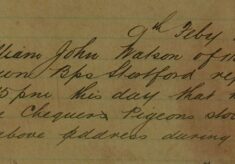 9th Feby
lliam John Watson of
een Bps Stortford rep
5 pm this day that
e Chequers Pigeons sto
above address during